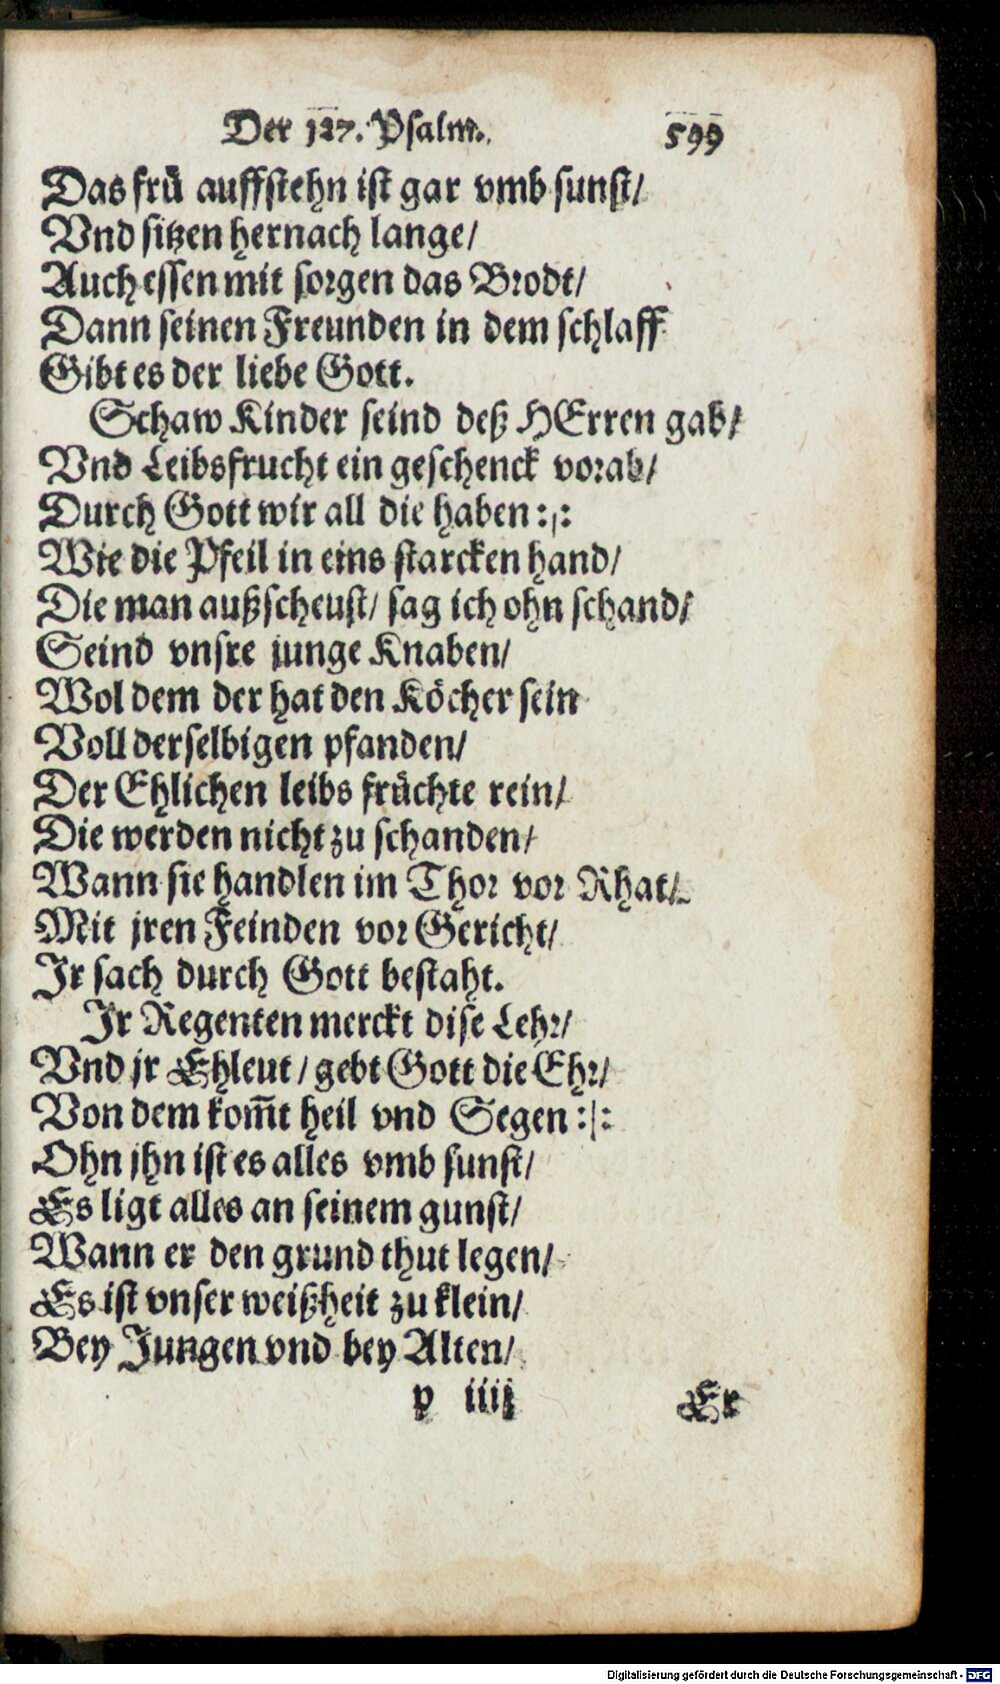 Der 127. Psalm. 599
Das frü auffstehn ist gar vmb sunst/
Vnd sitzen hernach lange/
Auch essen mit sorgen das Brodt/
Dann seinen Freunden in dem schlaff
Gibt es der liebe Gott.
Schaw Kinder seind deß HErren gab/
Vnd Leibsfrucht ein geschenck vorab/
Durch Gott wir all die haben :/:
Wie die Pfeil in eins starcken hand/
Die man außscheust/ sag ich ohn schand/
Seind vnsre junge Knaben/
Wol dem der hat den Köcher sein
Voll derselbigen pfanden/
Der Ehlichen leibs früchte rein/
Die werden nicht zu schanden/
Wann sie handlen im Thor vor Rhat/
Mit jren Feinden vor Gericht/
Jr sach durch Gott bestaht.
Jr Regenten merckt dise Lehr/
Vnd jr Ehleut/ gebt Gott die Ehr/
Von dem kom̃t heil vnd Segen :/:
Ohn jhn ist es alles vmb sunst/
Es ligt alles an seinem gunst/
Wann er den grund thut legen/
Es ist vnser weißheit zu klein/
Bey Jungen vnd bey Alten/
p iiij Er
Digitalisierung gefördert durch die Deutsche Forschungsgemeinschaft - DFG